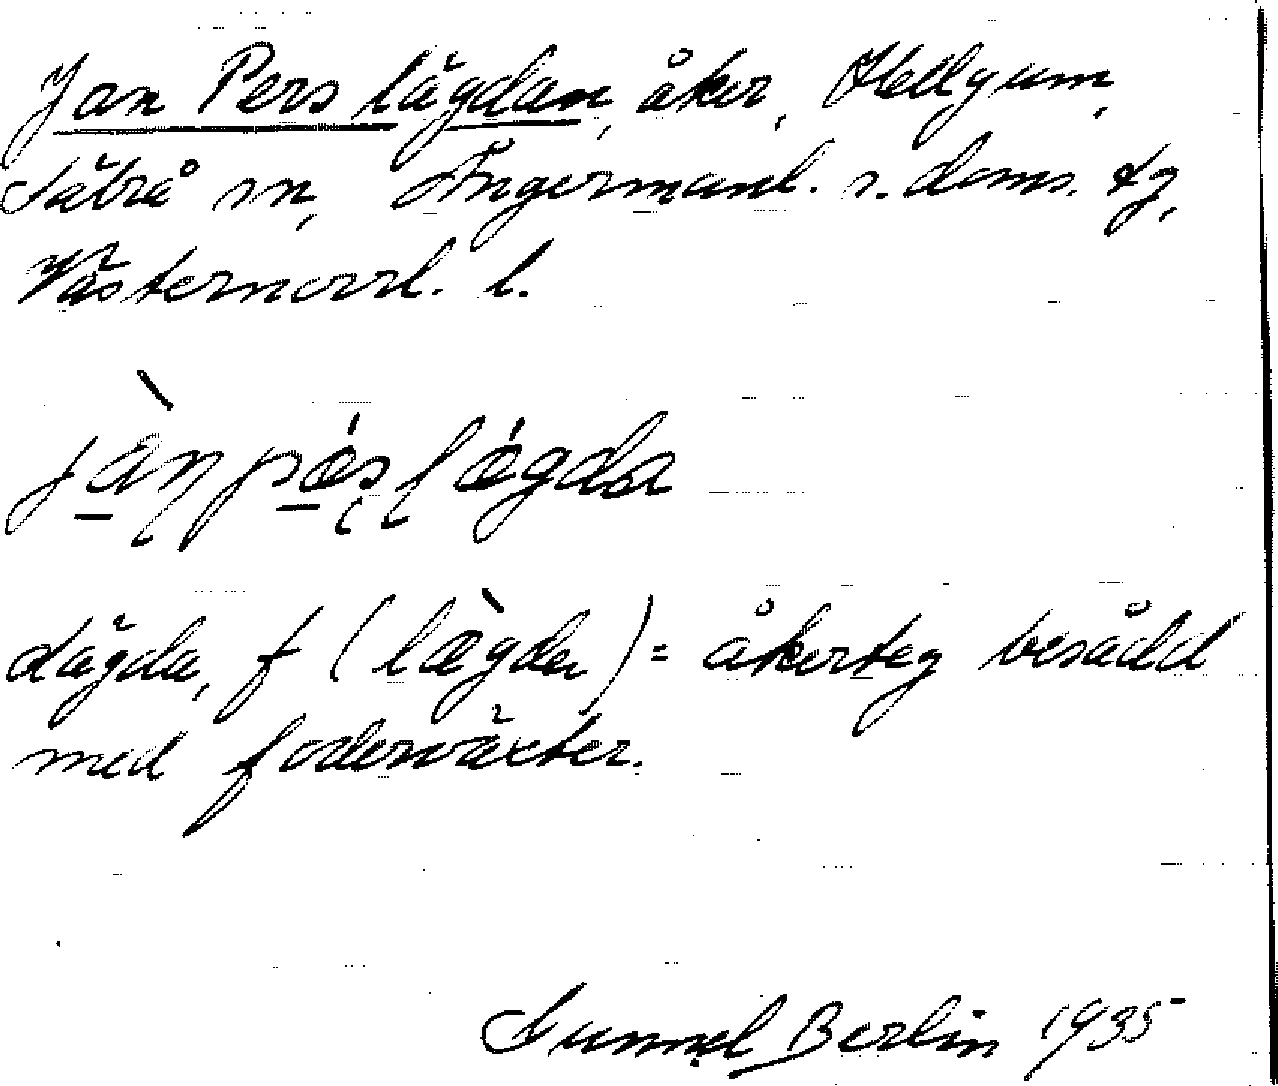 Jan Pers lägdan, åker, Hellgum,
Sätrå sn, Ångermanl. s. doms. tg,
Västernorrl. l.
jàṇpǽṣlǽgda
Lägda, f (lægda) = åkerteg besådd
med foderväxter.
Gunnel Berlin 1935